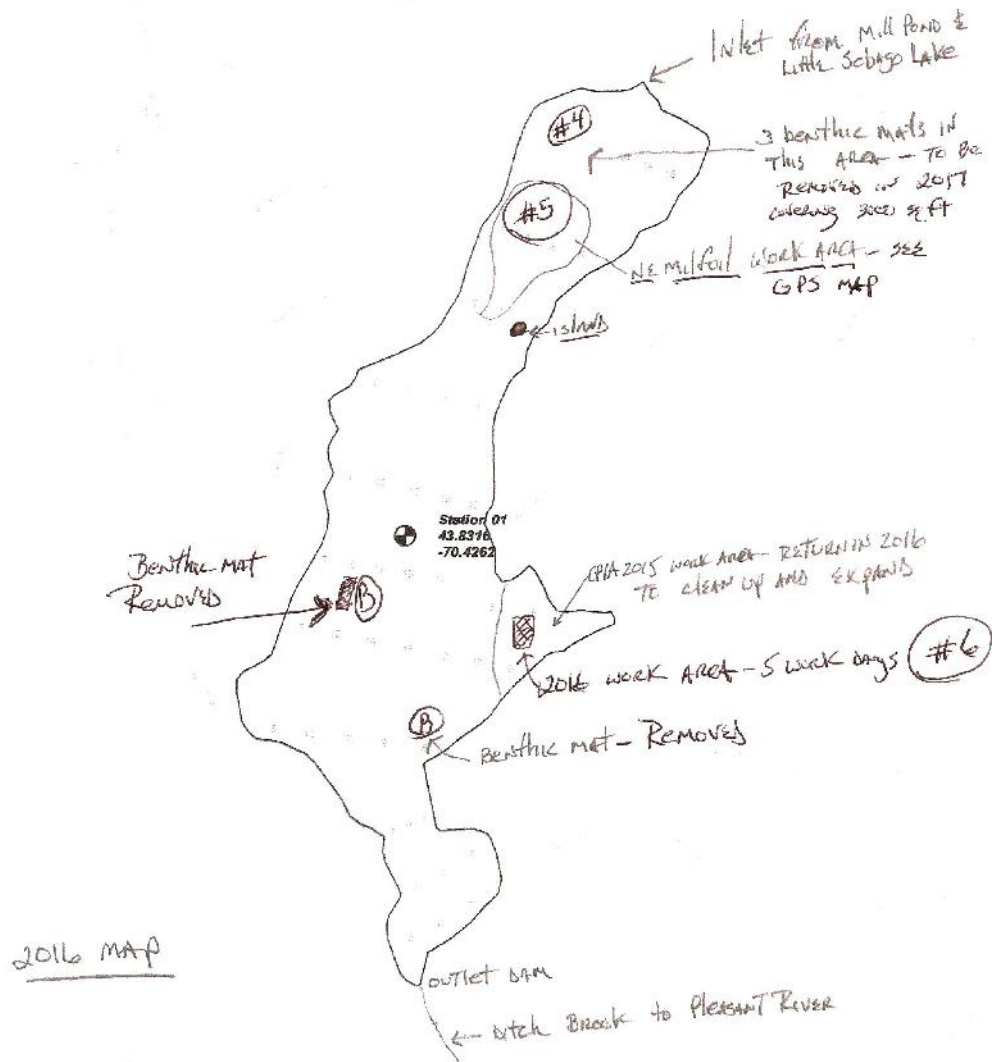 Inlet from Mill Pond &
Little Sebago Lake
#4
3 benthic mats in
this AREA - TO BE
REMOVED in 2017
covering sq ft
#5
NE Milfoil WORK AREA - SEE
GPS MAP
island
Station 01
43.8316
-70.4262
Benthic mat
Removed
B
2015 WORK AREA - RETURN IN 2016
TO CLEAN UP AND EXPAND
2016 WORK AREA - 5 WORK DAYS #6
B
Benthic mat - Removed
2016 MAP
OUTLET DAM
Ditch Brook to Pleasant River